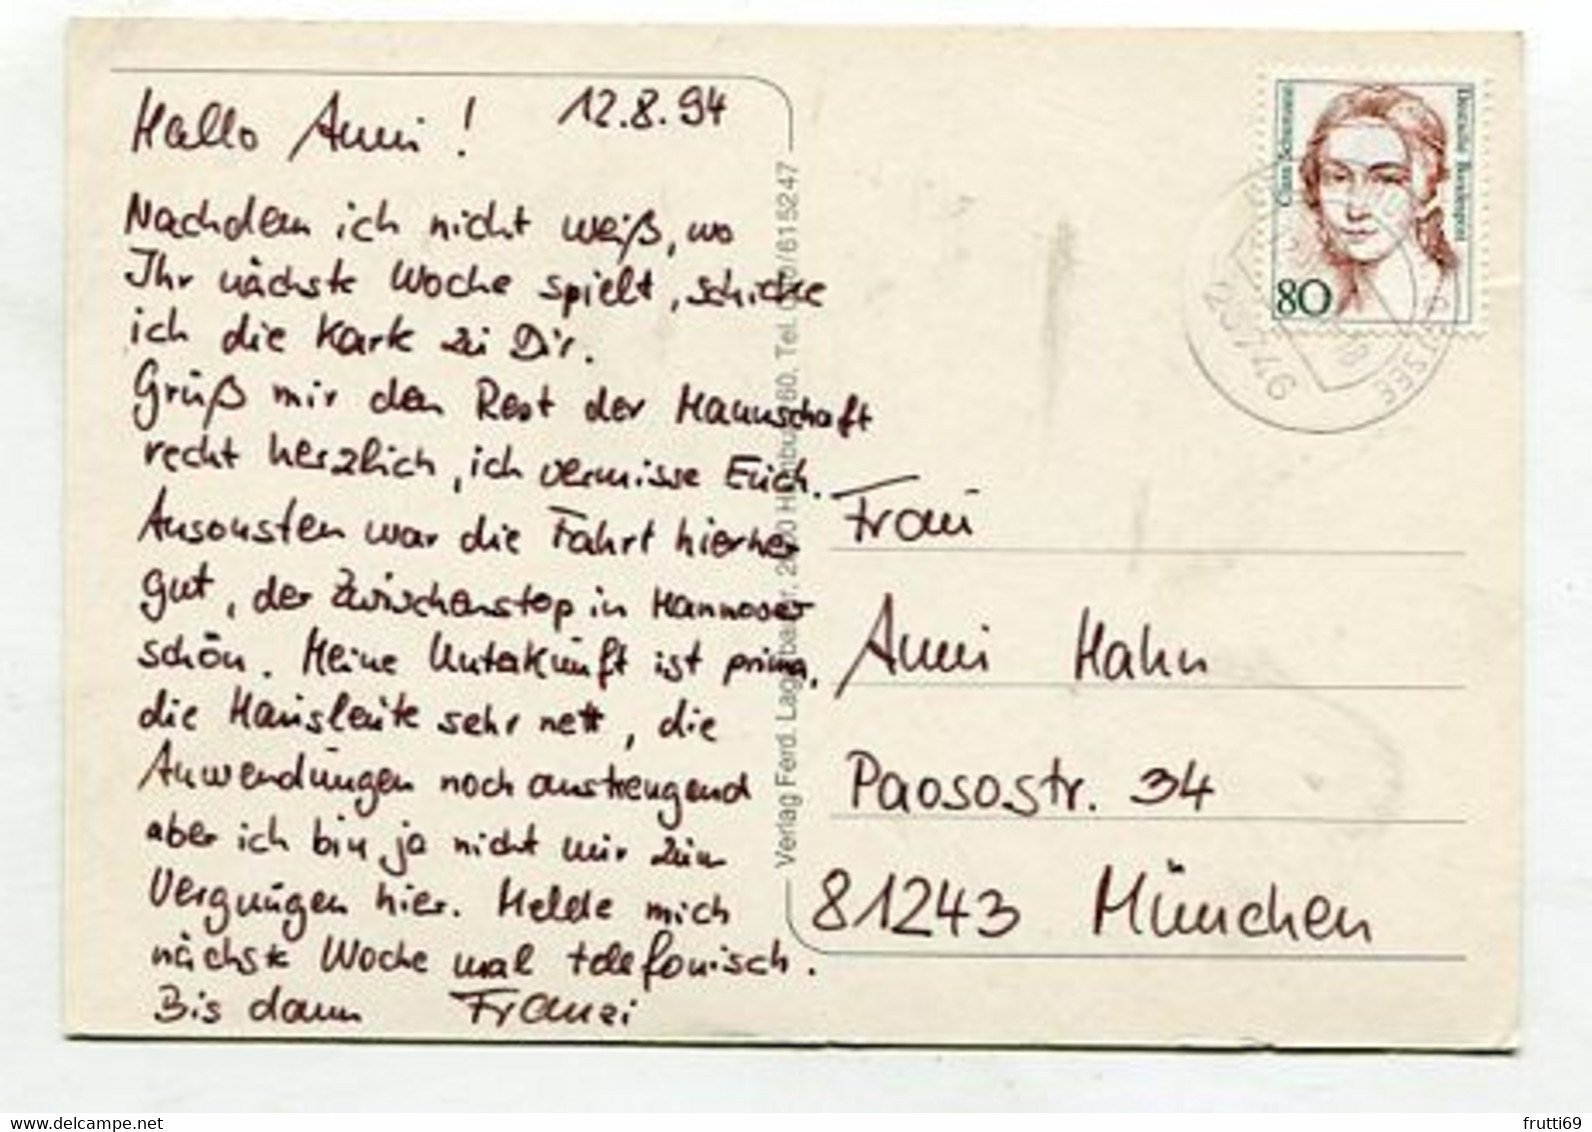 Hallo Anni !
12.8.94
Nachdem ich nicht weiß, wo
Ihr nächste Woche spielt, schicke
ich die Karte zu Dir.
Grüß mir den Rest der Mannschaft
recht herzlich, ich vermisse Euch.
Ansonsten war die Fahrt hierher
gut, der Zwischenstop in Hannover
schön. Meine Unterkunft ist prima,
die Hausleute sehr nett, die
Anwendungen noch anstrengend
aber ich bin ja nicht nur zum
Vergnügen hier. Melde mich
nächste Woche mal telefonisch.
Bis dann Franzi
Verlag Ferd. 60. Tel. /615247
Clara Schumann
Deutsche Bundespost
80
Frau
Anni Hahn
Paosostr. 34
81243 München
frutti69